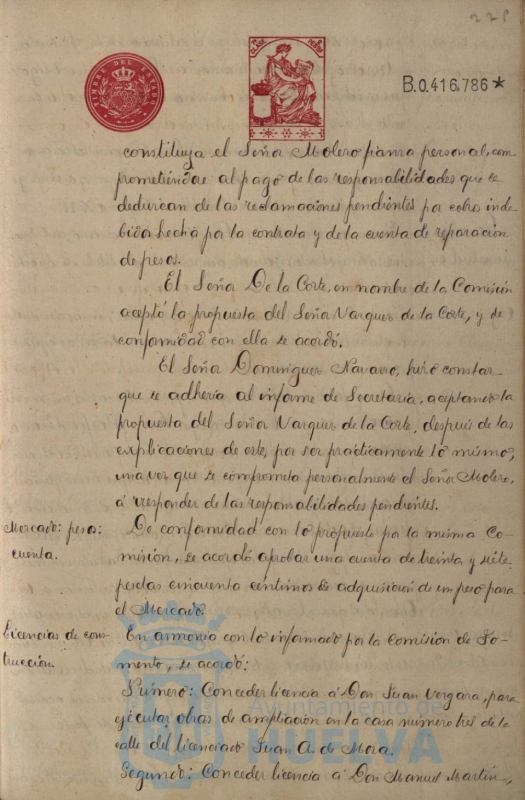 225
TIMBRE DEL ESTADO
CLASE
B.0.416.786*
constituya el Señor Molero fianza personal, com-
prometiéndose al pago de las responsabilidades que se
deduzcan de las reclamaciones pendientes por cobro inde-
bido hecho por la contrata y de la cuenta de reparación
de pesos.
El Señor De la Corte, en nombre de la Comisión
aceptó la propuesta del Señor Vazquez de la Corte, y de
conformidad con ella se acordó.
El Señor Dominguez Navarro, hizo constar-
que se adhería al informe de Secretaría, aceptando la
propuesta del Señor Vazquez de la Corte, después de las
explicaciones de este, por ser prácticamente lo mismo,
una vez que se comprometa personalmente el Señor Molero,
á responder de las responsabilidades pendientes.
Mercado: peso:
cuenta.
De conformidad con lo propuesto por la misma Co-
misión, se acordó aprobar una cuenta de treinta y siete
pesetas cincuenta centimos de adquisicion de un peso para
el Mercado.
Licencias de cons-
trucción.
En armonía con lo informado por la Comisión de Fo-
mento, se acordó:
Primero: Conceder licencia á Don Juan Vergara, para
ejecutar obras de ampliación en la casa número tres de la
calle del licenciado Juan A. de Mora.
Segundo: Conceder licencia á Don Manuel Martin,
Ayuntamiento de
HUELVA